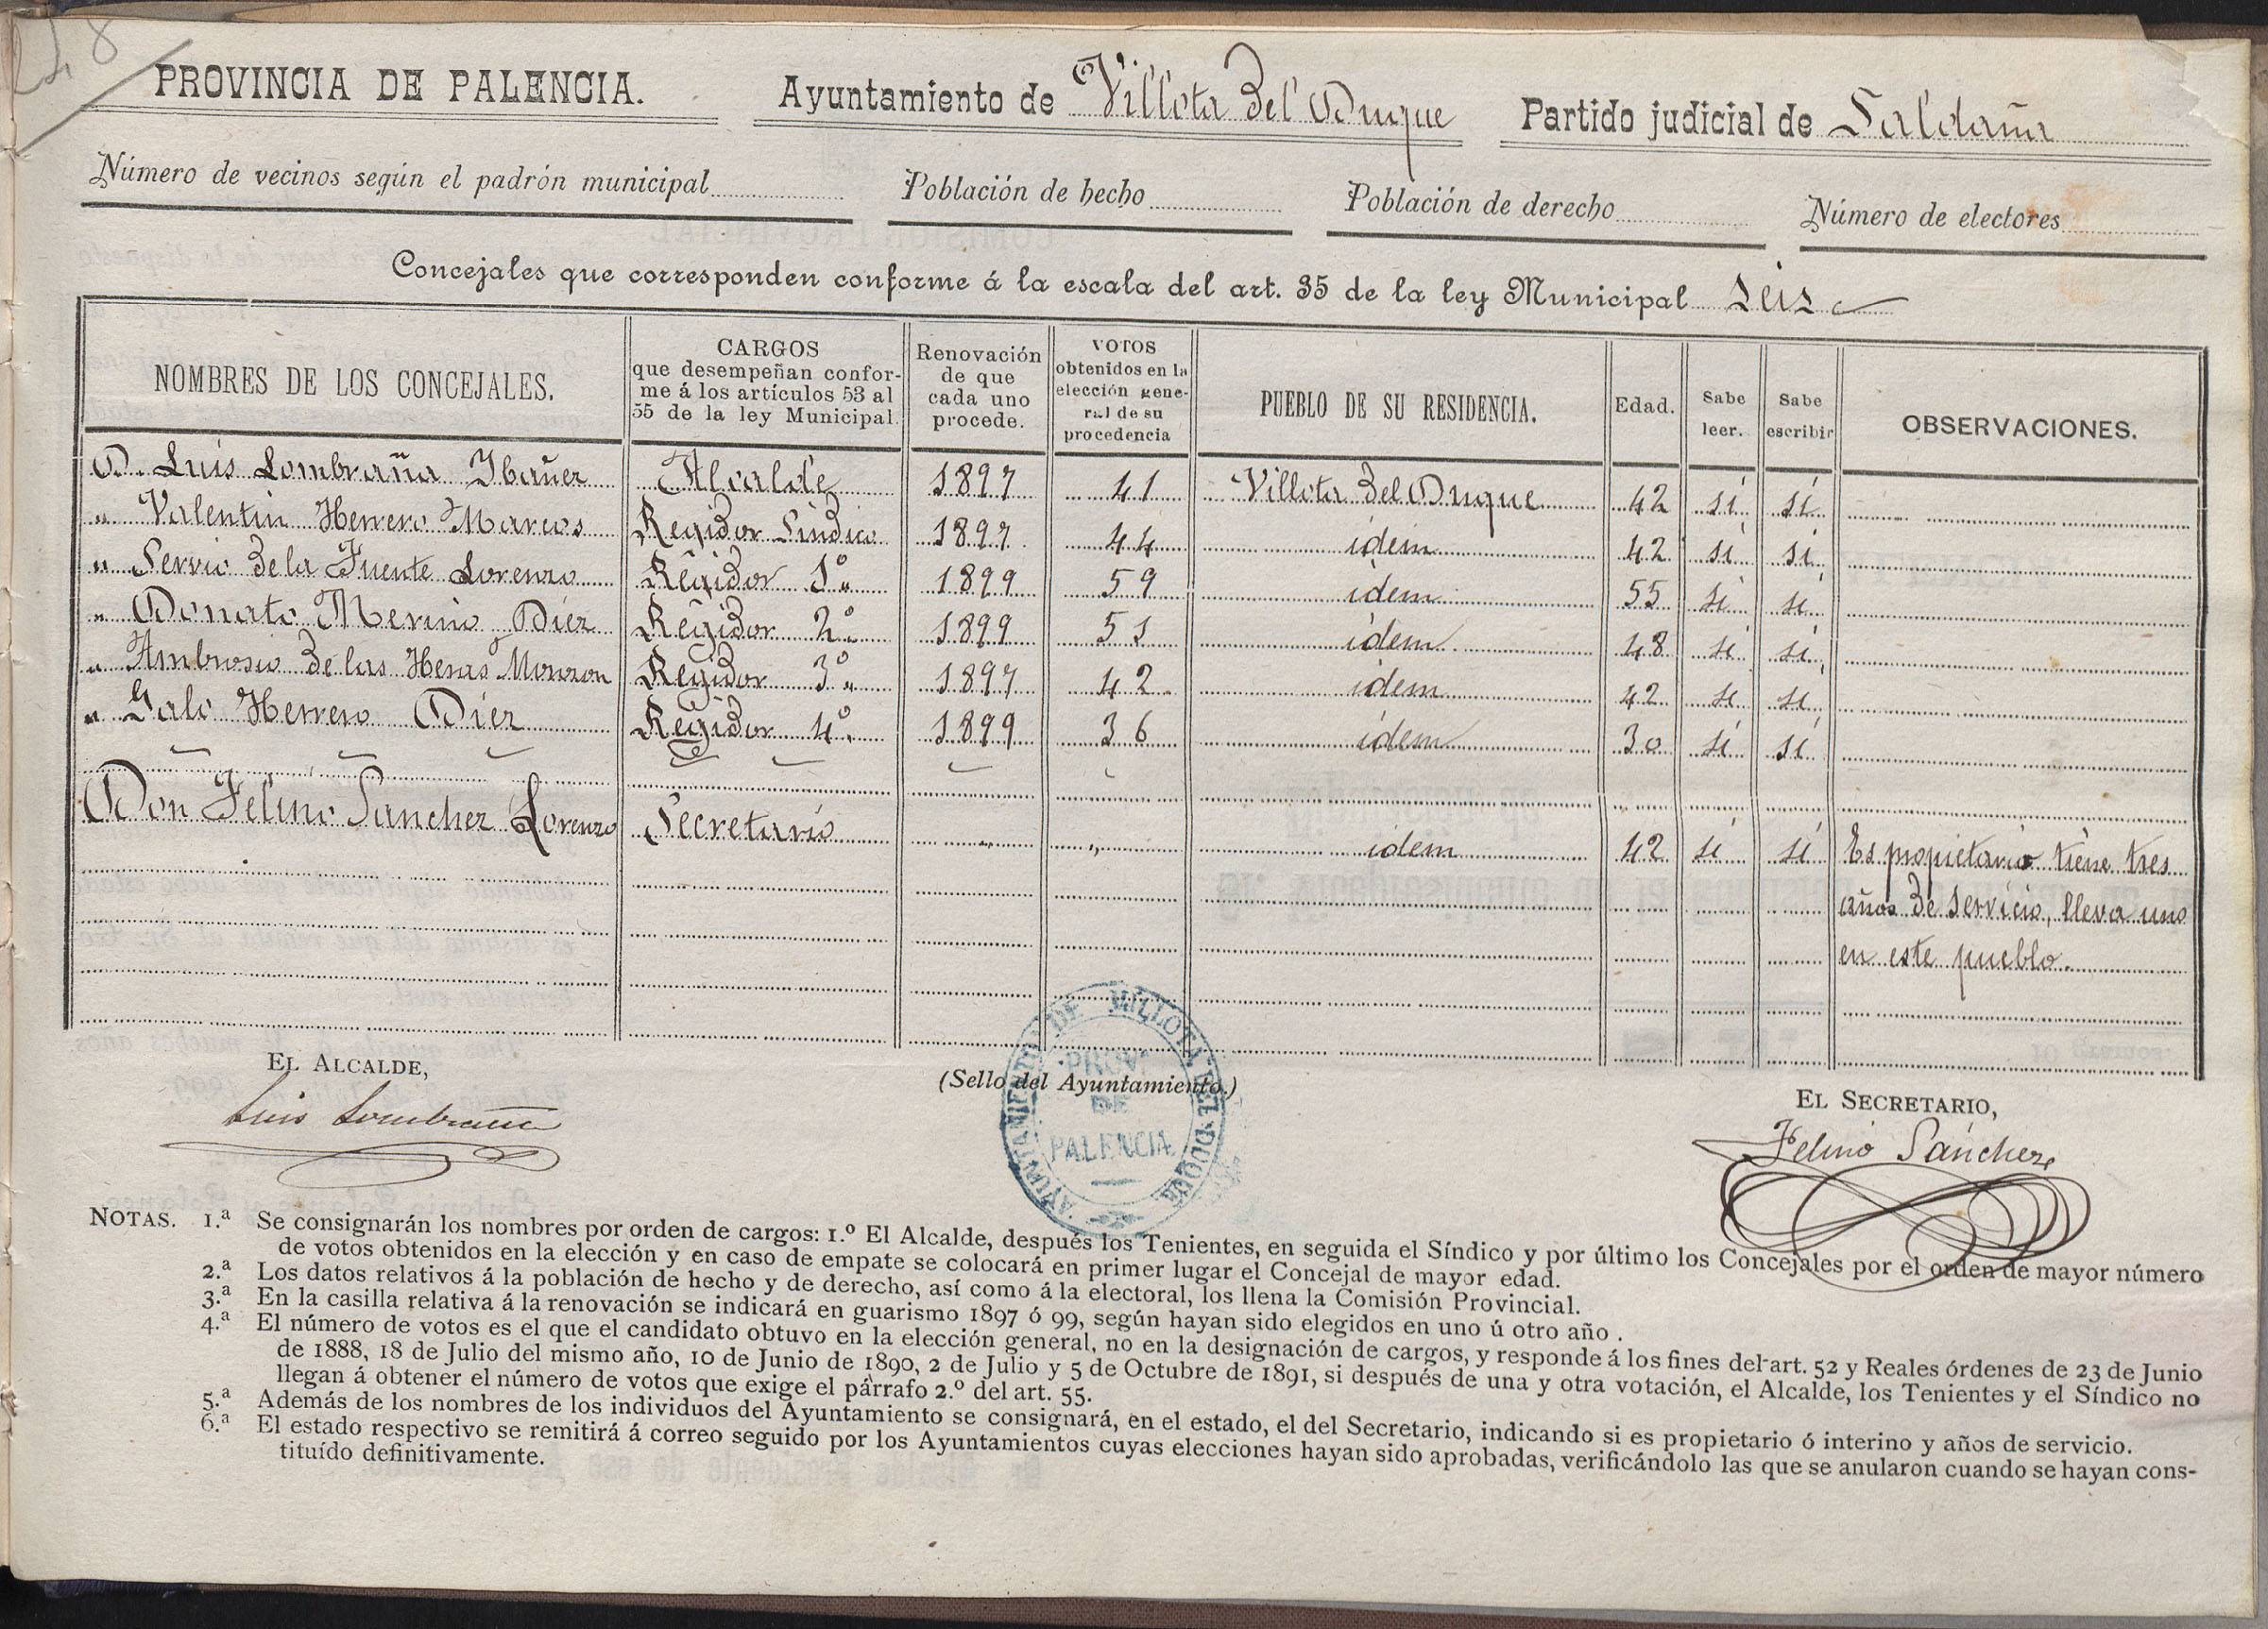 248
PROVINCIA DE PALENCIA. Ayuntamiento de Villota del Duque Partido judicial de Saldaña
Número de vecinos según el padrón municipal Población de hecho Población de derecho Número de electores
Concejales que corresponden conforme á la escala del art. 35 de la ley Municipal Seis
NOMBRES DE LOS CONCEJALES. CARGOS que desempeñan conforme á los artículos 53 al 55 de la ley Municipal. Renovación de que cada uno procede. VOTOS obtenidos en la elección general de su procedencia PUEBLO DE SU RESIDENCIA. Edad. Sabe leer. Sabe escribir OBSERVACIONES.
D. Luis Lombraña Ibañez Alcalde 1897 41 Villota del Duque 42 sí sí
" Valentin Herrero Marcos Regidor Sindico 1897 44 idem 42 si si
" Servio de la Fuente Lorenzo Regidor 1º 1899 59 idem 55 si si
" Donato Merino Diez Regidor 2º 1899 51 idem 48 si si
" Ambrosio de las Heras Monzon Regidor 3º 1897 42 idem 42 si si
" Galo Herrero Diez Regidor 4º 1899 36 idem 30 si si
Don Felino Sanchez Lorenzo Secretario " " idem 42 si si Es propietario tiene tres
años de servicio, lleva uno
en este pueblo.
EL ALCALDE,
Luis Lombraña
(Sello del Ayuntamiento.)
AYUNTAMIENTO DE VILLOTA DEL DUQUE
PROV.
DE
PALENCIA
EL SECRETARIO,
Felino Sánchez
NOTAS. 1.ª Se consignarán los nombres por orden de cargos: 1.º El Alcalde, después los Tenientes, en seguida el Síndico y por último los Concejales por el orden de mayor número
de votos obtenidos en la elección y en caso de empate se colocará en primer lugar el Concejal de mayor edad.
2.ª Los datos relativos á la población de hecho y de derecho, así como á la electoral, los llena la Comisión Provincial.
3.ª En la casilla relativa á la renovación se indicará en guarismo 1897 ó 99, según hayan sido elegidos en uno ú otro año .
4.ª El número de votos es el que el candidato obtuvo en la elección general, no en la designación de cargos, y responde á los fines del art. 52 y Reales órdenes de 23 de Junio
de 1888, 18 de Julio del mismo año, 10 de Junio de 1890, 2 de Julio y 5 de Octubre de 1891, si después de una y otra votación, el Alcalde, los Tenientes y el Síndico no
llegan á obtener el número de votos que exige el párrafo 2.º del art. 55.
5.ª Además de los nombres de los individuos del Ayuntamiento se consignará, en el estado, el del Secretario, indicando si es propietario ó interino y años de servicio.
6.ª El estado respectivo se remitirá á correo seguido por los Ayuntamientos cuyas elecciones hayan sido aprobadas, verificándolo las que se anularon cuando se hayan cons-
tituído definitivamente.